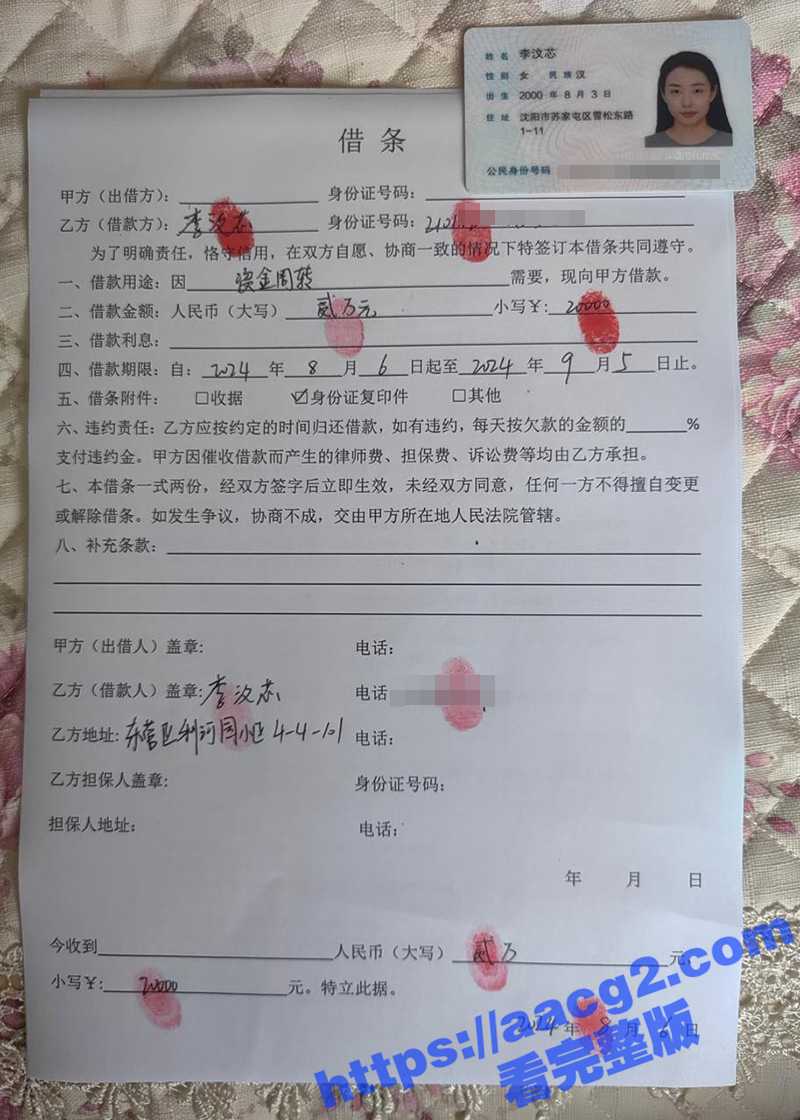 姓名 李汶芯
性别 女 民族 汉
出生 2000 年 8 月 3 日
住址 沈阳市苏家屯区雪松东路
1-11
公民身份号码
借条
甲方(出借方):身份证号码:
乙方(借款方):李汶芯 身份证号码:2101
为了明确责任,恪守信用,在双方自愿、协商一致的情况下特签订本借条共同遵守。
一、借款用途:因 资金周转 需要,现向甲方借款。
二、借款金额:人民币(大写)贰万元 小写¥:20000
三、借款利息:
四、借款期限:自:2024 年 8 月 6 日起至 2024 年 9 月 5 日止。
五、借条附件:□收据 ☑身份证复印件 □其他
六、违约责任:乙方应按约定的时间归还借款,如有违约,每天按欠款的金额的______%
支付违约金。甲方因催收借款而产生的律师费、担保费、诉讼费等均由乙方承担。
七、本借条一式两份,经双方签字后立即生效,未经双方同意,任何一方不得擅自变更
或解除借条。如发生争议,协商不成,交由甲方所在地人民法院管辖。
八、补充条款:
甲方(出借人)盖章: 电话:
乙方(借款人)盖章:李汶芯 电话
乙方地址:东营区利河园小区 4-4-101 电话:
乙方担保人盖章: 身份证号码:
担保人地址: 电话:
年 月 日
今收到 人民币(大写)贰万 元,
小写¥:20000 元。特立此据。
2024 年 8 月 6 日
https://aacg2.com
看完整版